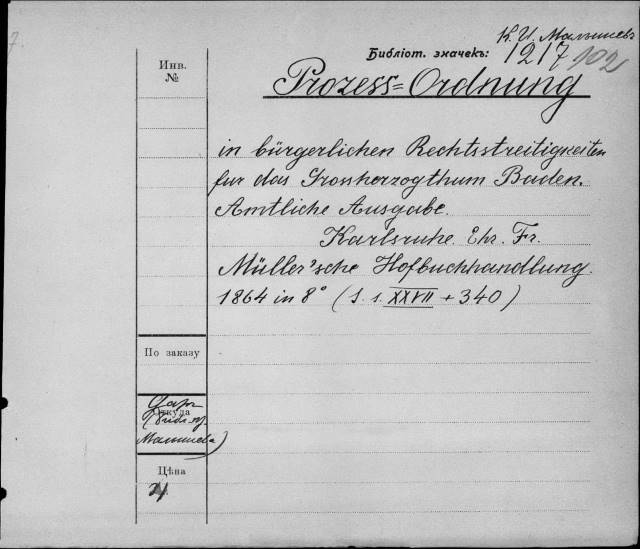 7.
К. И. Малышевъ
Библіот. значекъ: 1217 102
Инв.
№
Prozess=Ordnung
in bürgerlichen Rechtsstreitigkeiten
fur das Grosherzogthum Baden.
Amtliche Ausgabe.
Karlsruhe. Chr. Fr.
Müller'sche Hofbuchhandlung.
1864 in 8° (S. s. XXVII + 340)
По заказу
Даръ
Откуда
Малышева)
Цѣна